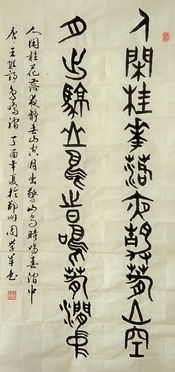 人閑桂華落夜静春山空
月出驚山鳥時鳴春澗中
人闲桂花落夜静春山空月出驚山鸟時鳴春澗中
唐王維詩鸟鳴澗丁酉年夏於郑州